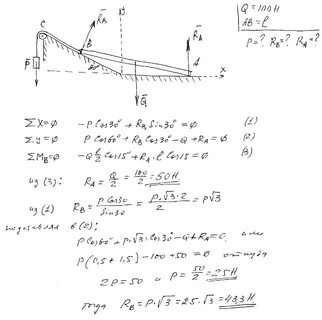 Q = 100 H
AB = ℓ
P = ? R_B = ? R_A = ?
C
y
R̄_B
R̄_A
B
P̄
30°
A
x
Q̄
ΣX=∅ -P cos30° + R_B sin30° = ∅ (1)
Σy=∅ P cos60° + R_B cos30° - Q + R_A = ∅ (2)
ΣM_B=∅ -Q ℓ/2 cos15° + R_A·ℓ cos15 = ∅ (3)
из (3): R_A = Q/2 = 100/2 = 50 H
из (1) R_B = P cos30/sin30 = P·√3·2/2 = P√3
подставляя в (2):
P cos60° + P·√3·cos30° - Q + R_A = 0, или
P(0,5 + 1,5) - 100 + 50 = ∅ откуда
2P = 50 и P = 50/2 = 25 H
тогда R_B = P·√3 = 25·√3 = 43,3 H